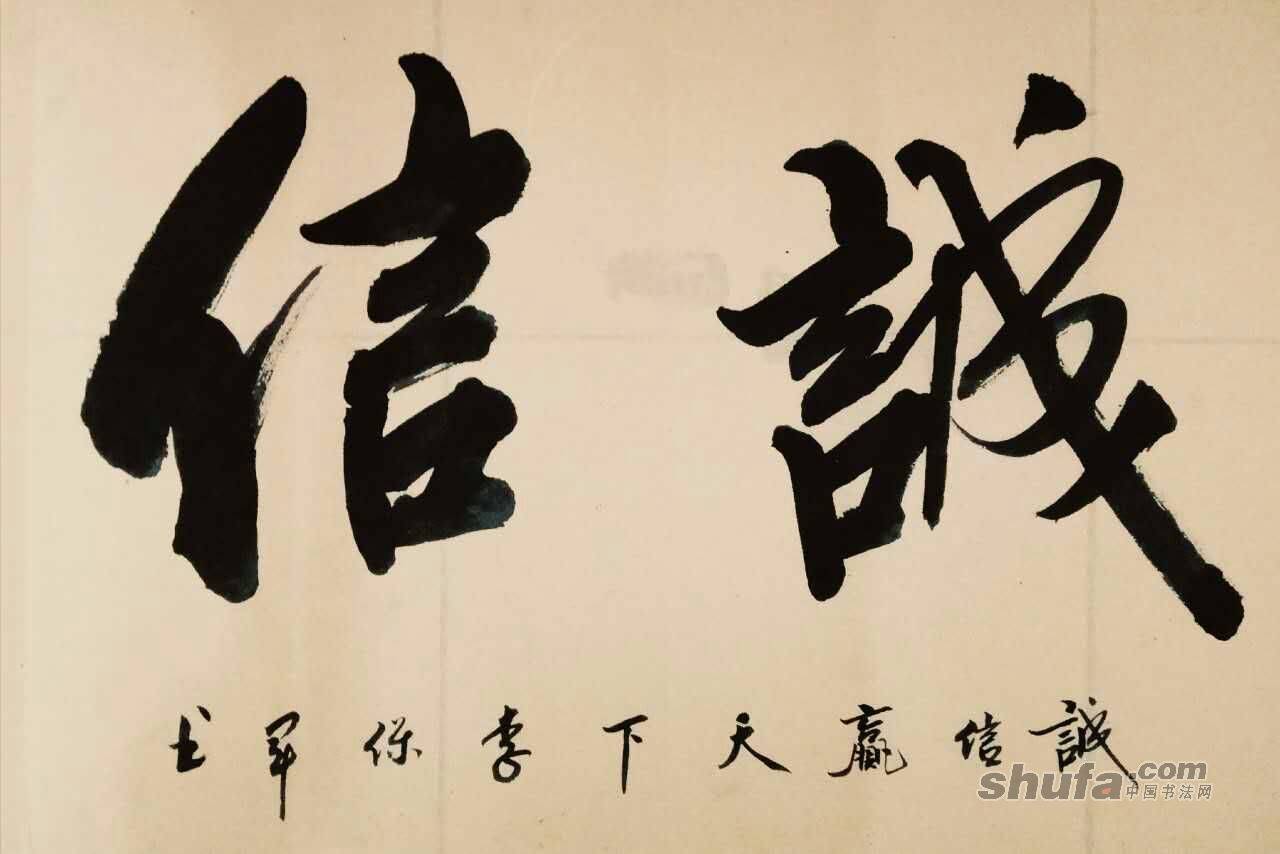 誠信
誠信贏天下李保軍书
shufa.com
中国书法网